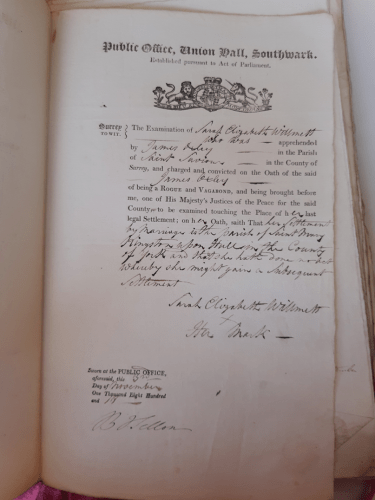 Public Office, Union Hall, Southwark.
Established pursuant to Act of Parliament.
Surrey The Examination of Sarah Elizabeth Willsmett
TO WIT. who was apprehended
by James in the Parish
of Saint Saviour in the County of
Surrey, and charged and convicted on the Oath of the said
James
of being a ROGUE and VAGABOND, and being brought before
me, one of His Majesty's Justices of the Peace for the said
County to be examined touching the Place of her last
legal Settlement; on her Oath, saith That her Settlement
by Marriage is the Parish of Saint Mary
Kingston upon Hull in the County
of York and that she hath done no act
whereby she might gain a Subsequent
Settlement
Sarah Elizabeth Willsmett
Her Mark
Sworn at the PUBLIC OFFICE,
aforesaid, this
Day of November
One Thousand Eight Hundred
and 18